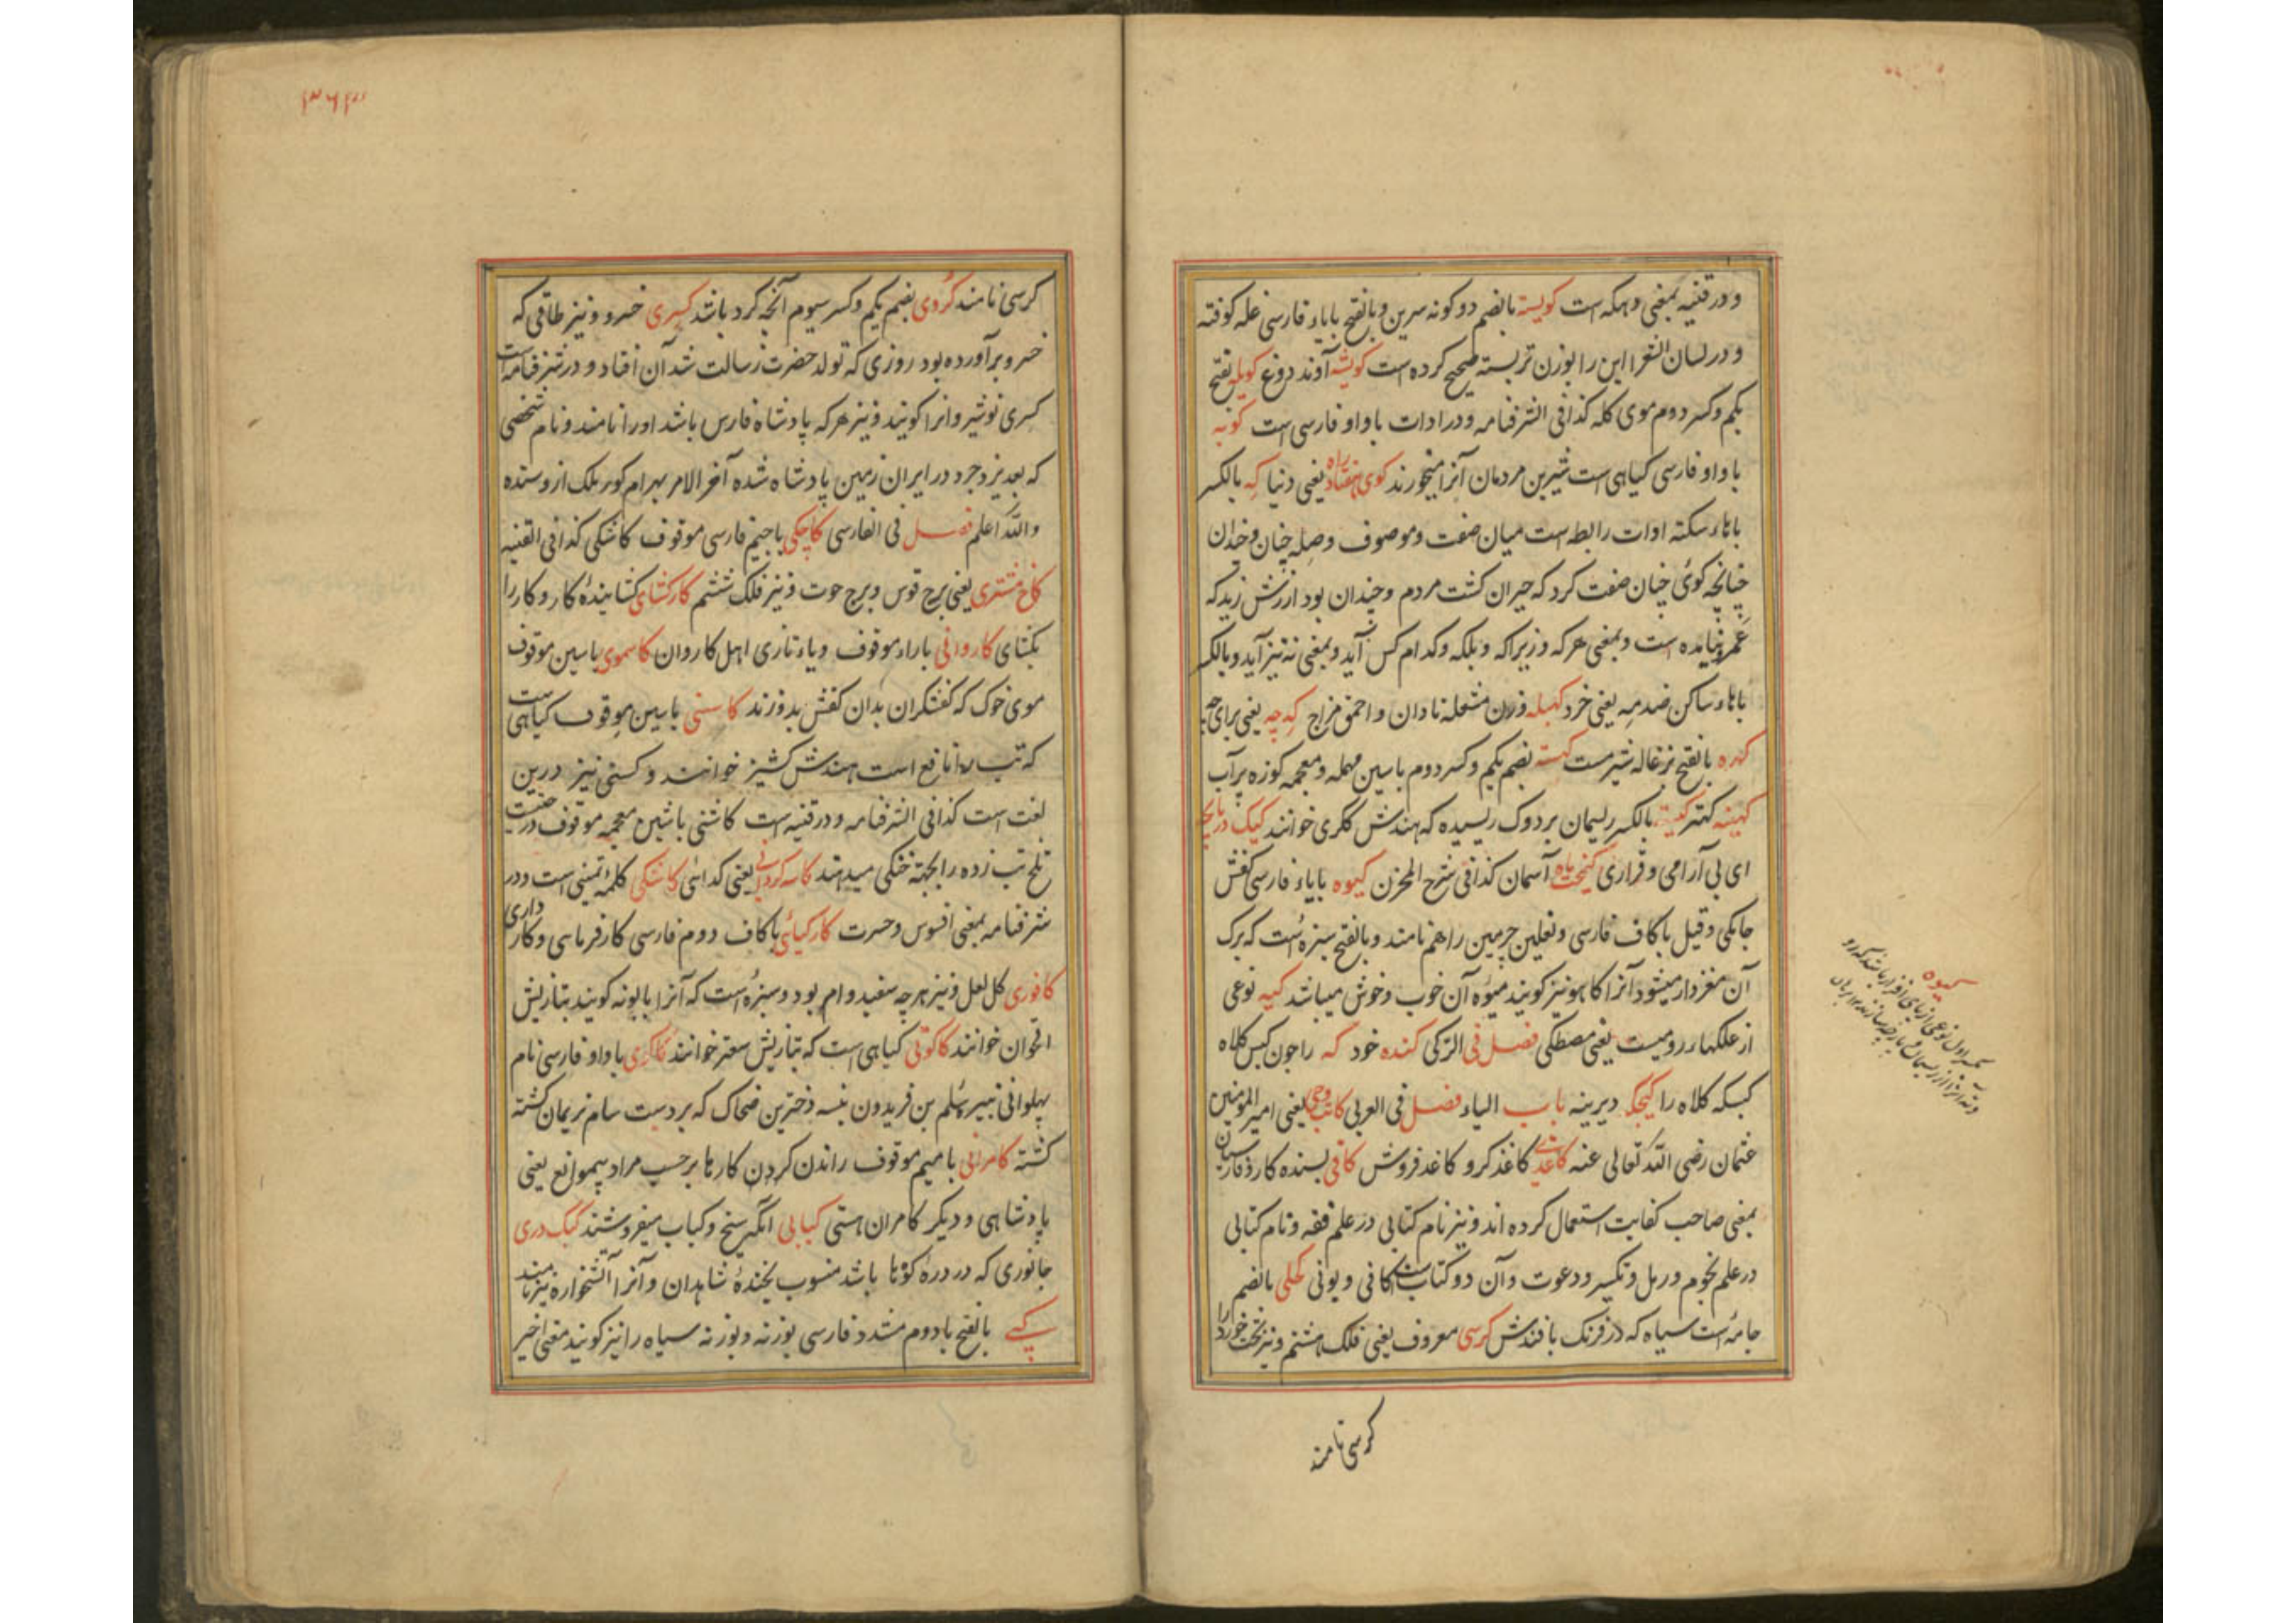 و در قنیه بمعنی دهکه است کویسته بالضم دو کونه سرین و بالفتح بایاء فارسی غله کوفته
و در لسان الشعرا این را بوزن تربسته صحیح کرده است کویشه آوند دوغ کویله بفتح
یکم و کسر دوم موی کله کذا فی الشرفنامه و در ادات با واو فارسی است کویه
با واو فارسی کیاهی است شیرین مردمان آنرا میخورند کوی هفتاد راه یعنی دنیا که بالکسر
باهاء سکته ادات رابط است میان صفت و موصوف و صله چنان و چندان
چنانچه کوئی چنان صفت کرد که حیران کشت مردم و چندان بود ارزش زید که
عمر نیامده است و بمعنی هر که و زیرا که و بلکه و کدام کس آید و بمعنی نه نیز آید و بالکسر
باهاء ساکن ضد مه یعنی خرد کهبله وزن مشعله نادان و احمق مزاج که چه یعنی برای چه
کهره بالفتح بزغاله شیر مست بضم یکم و کسر دوم باسین مهمله و معجمه کوزه پر آب
کهینه کهتر بالکسر ریسمان بر دوک ریسیده که هندش ککری خوانند کیک در پاچه
ای بی آرامی و قراری آسمان کذا فی شرح المخزن کیوه بایاء فارسی کفش
جامکی و قیل با کاف فارسی و نعلین چرمین را هم نامند و بالفتح سبزه است که برک
آن مغزدار میشود آنرا کاهو نیز کویند میوه آن خوب و خوش میباشد کیه نوعی
از علکهاء رومیست یعنی مصطکی فصل فی الترکی کنده خود که را جون کبس کلاه
کبسکه کلاه را کیجکه دیرینه باب الیاء فصل فی العربی کاتب وحی یعنی امیر المومنین
عثمان رضی الله تعالی عنه کاغذی کاغذ کر و کاغذ فروش کافی بسنده کار و فارسیان
بمعنی صاحب کفایت استعمال کرده اند و نیز نام کتابی در علم فقه و نام کتابی
در علم نجوم و رمل و تکسیر و دعوت و آن دو کتاب است کافی و بونی کحلی بالضم
جامه است سیاه که در فرنک بافندش کرسی معروف یعنی فلک هشتم و نیز تخت خورد را
کرسی نامند
کیوه
۳۶۳
کرسی نامند کردی بضم یکم و کسر سیوم آنچه کرد باشد کسری خسرو و نیز طاقی که
خسرو برآورده بود روزی که تولد حضرت رسالت شد آن افتاد و در شرفنامه است
کسری نوشیروانرا کویند و نیز هر که پادشاه فارس باشد او را نامند و نام شخصی
که بعد یزدجرد در ایران زمین پادشاه شده آخر الامر بهرام کور ملک از و ستده
والله اعلم فصل فی الفارسی کاچکی باجیم فارسی موقوف کاشکی کذا فی القنیه
کاخ مشتری یعنی برج قوس و برج حوت و نیز فلک ششم کارکشای کشاینده کار و کار را
بکشای کاروانی باراء موقوف ویاء تازی اهل کاروان کاسموی باسین موقوف
موی خوک که کفشکران بدان کفش بدوزند کاسنی باسین موقوف کیاهی است
که تب را نافع است هندش کشیز خوانند و کسنی نیز درین
لغت است کذا فی الشرفنامه و در قنیه است کاشنی باشین معجمه موقوف
تلخ تب زده را بجهة خنکی میدهند کاسه کردانی یعنی کدائی کاشکی کلمه تمنی است و در
شرفنامه بمعنی افسوس و حسرت کارکیائی با کاف دوم فارسی کارفرمایی و کارداری
کافوری کل لعل و نیز هر چه سفید وام بود و سبزه است که آنرا بابونه کویند بتازیش
اقحوان خوانند کاکوتی کیاهی است که بتازیش سعتر خوانند کاکوی با واو فارسی نام
پهلوانی نبیره سلم بن فریدون نبسه دخترین ضحاک که بر دست سام نریمان کشته
کشته کامرانی با میم موقوف راندن کردن کارها بر حسب مراد بیموانع یعنی
پادشاهی و دیکر کامران هستی کبابی آنکه سیخ و کباب میفروشند کبک دری
جانوری که در دره کوها باشد منسوب بخنده شاهدان و آنرا آتشخواره نیز نامند
کپی بالفتح بادوم مشدد فارسی بوزنه و بوزنه سیاه را نیز کویند معنی اخیر